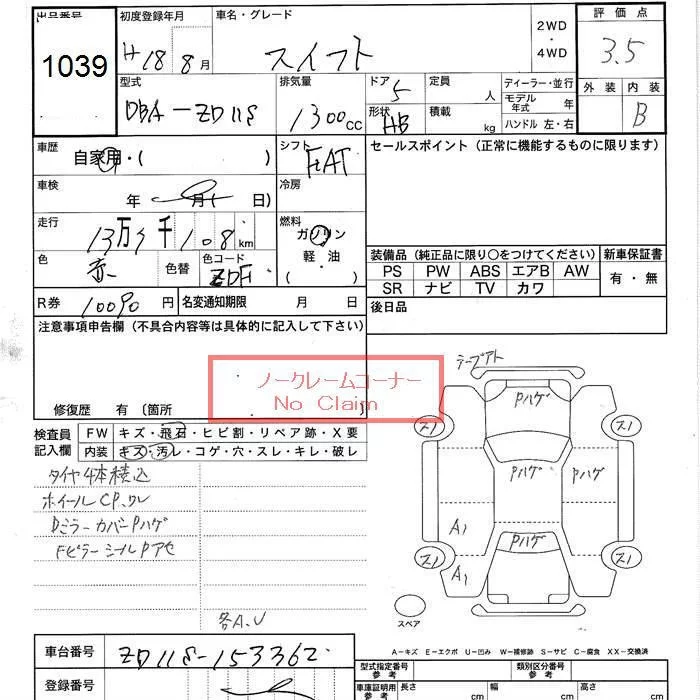 出品番号 初度登録年月 車名・グレード 2WD ・ 4WD 評価点
1039 H 18 8月 スイフト 3.5
型式 排気量 ドア 定員 ディーラー・並行 外装 内装
DBA-ZD11S 1300cc 5 人 モデル年式 年 B
形状 HB 積載 kg ハンドル 左・右
車歴 自家用・( ) シフト FAT セールスポイント (正常に機能するものに限ります)
車検 年 月( 日) 冷房
走行 13万 千108km 燃料 ガソリン
軽・油
( )
色 赤 色替 色コード ZDF
装備品 (純正品に限り○をつけてください) 新車保証書
PS PW ABS エアB AW 有・無
SR ナビ TV カワ
R券 10090円 名変通知期限 月 日 後日品
注意事項申告欄 (不具合内容等は具体的に記入して下さい)
ノークレームコーナー
No Claim
修復歴 有 (箇所
検査員記入欄 FW キズ・飛石・ヒビ割・リペア跡・X要
内装 キズ・汚レ・コゲ・穴・スレ・キレ・破レ
タイヤ4本積込
ホイールCP、ワレ
Dミラーカバー Pハゲ
Fピラーシール Pアセ
各A、U
テープアト
Pハゲ
スリ スリ
Pハゲ Pハゲ
A1
Pハゲ
スリ A1 スリ
スペア
A-キズ E-エクボ U-凹み W-補修跡 S-サビ C-腐食 XX-交換済
車台番号 ZD11S-153362
型式指定番号 参考 類別区分番号 参考
登録番号 車庫証明用 参考 長さ cm 幅 cm 高さ cm